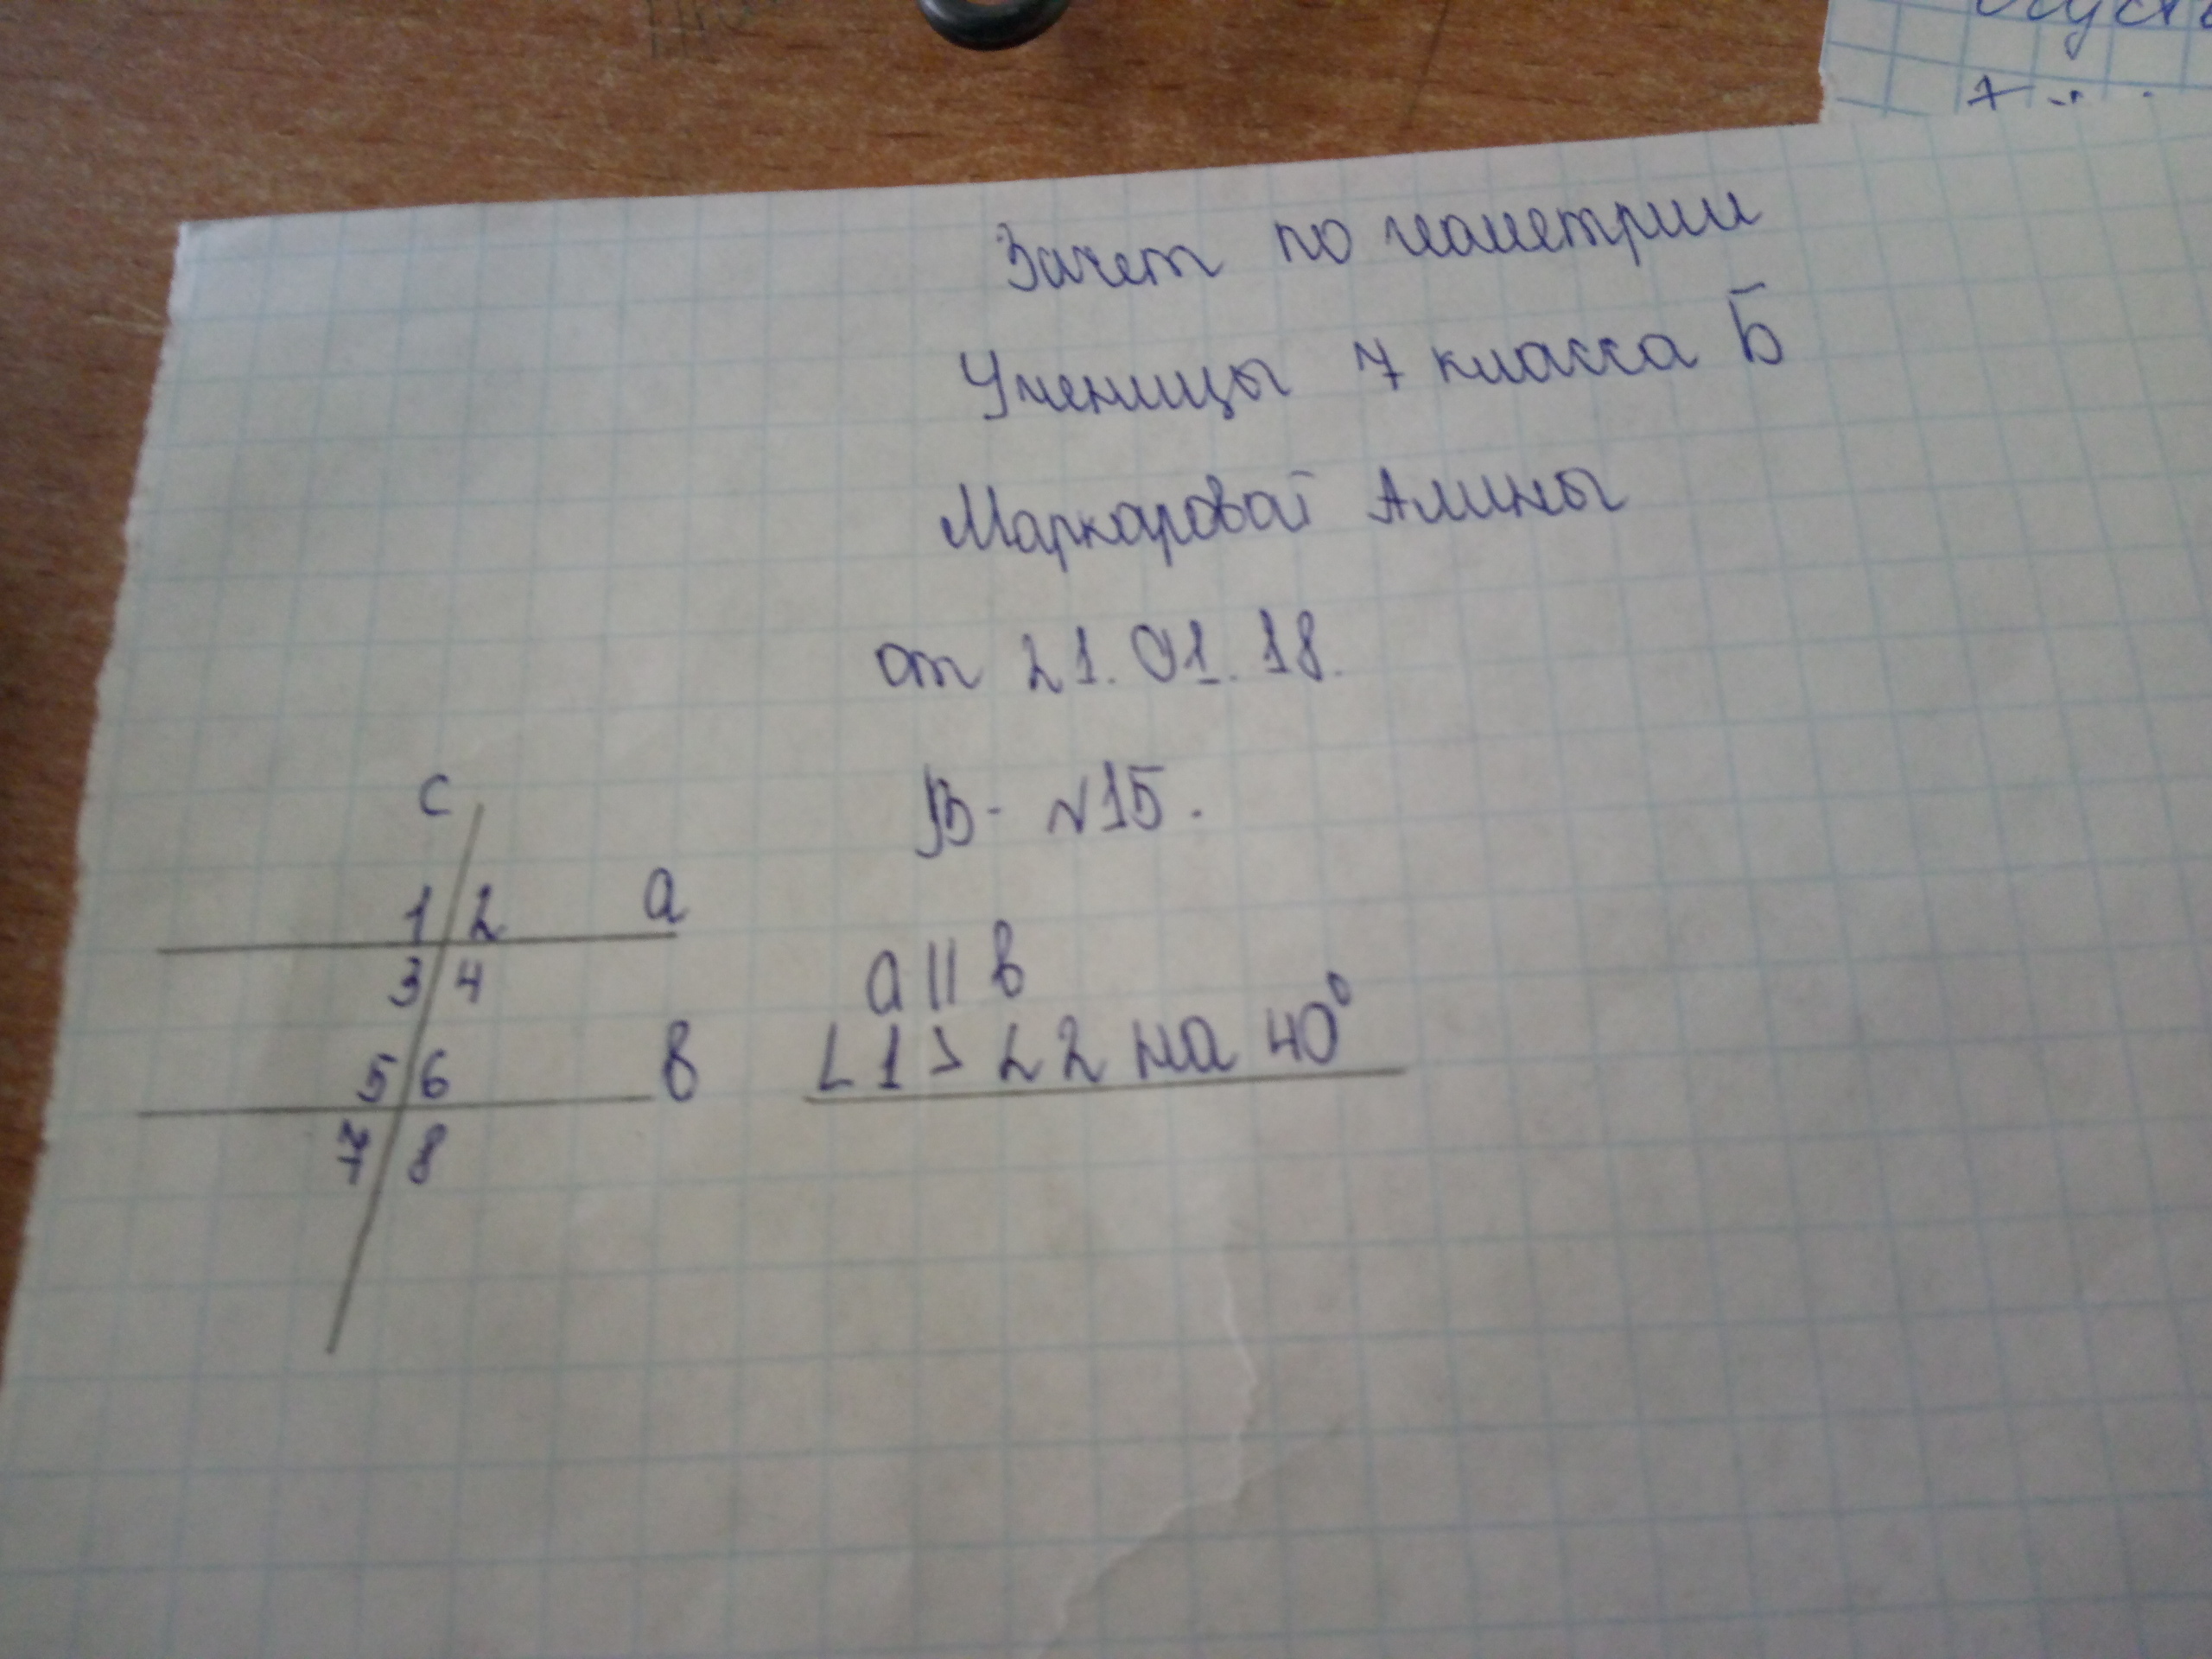 Зачет по геометрии
Ученицы 7 класса Б
Маркаровой Алины
от 21.01.18.
В- №15.
c
1 2 a
3 4
5 6 в
7 8
a || в
∠1 > ∠2 на 40°